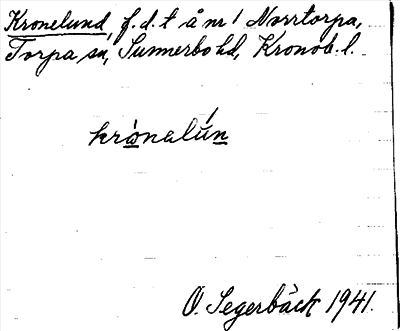 Kronelund, f.d.t å nr 1 Norrtorpa,
Torpa sn, Sunnerbo hd, Kronob. l.
krònalún
O. Segerbäck 1941.